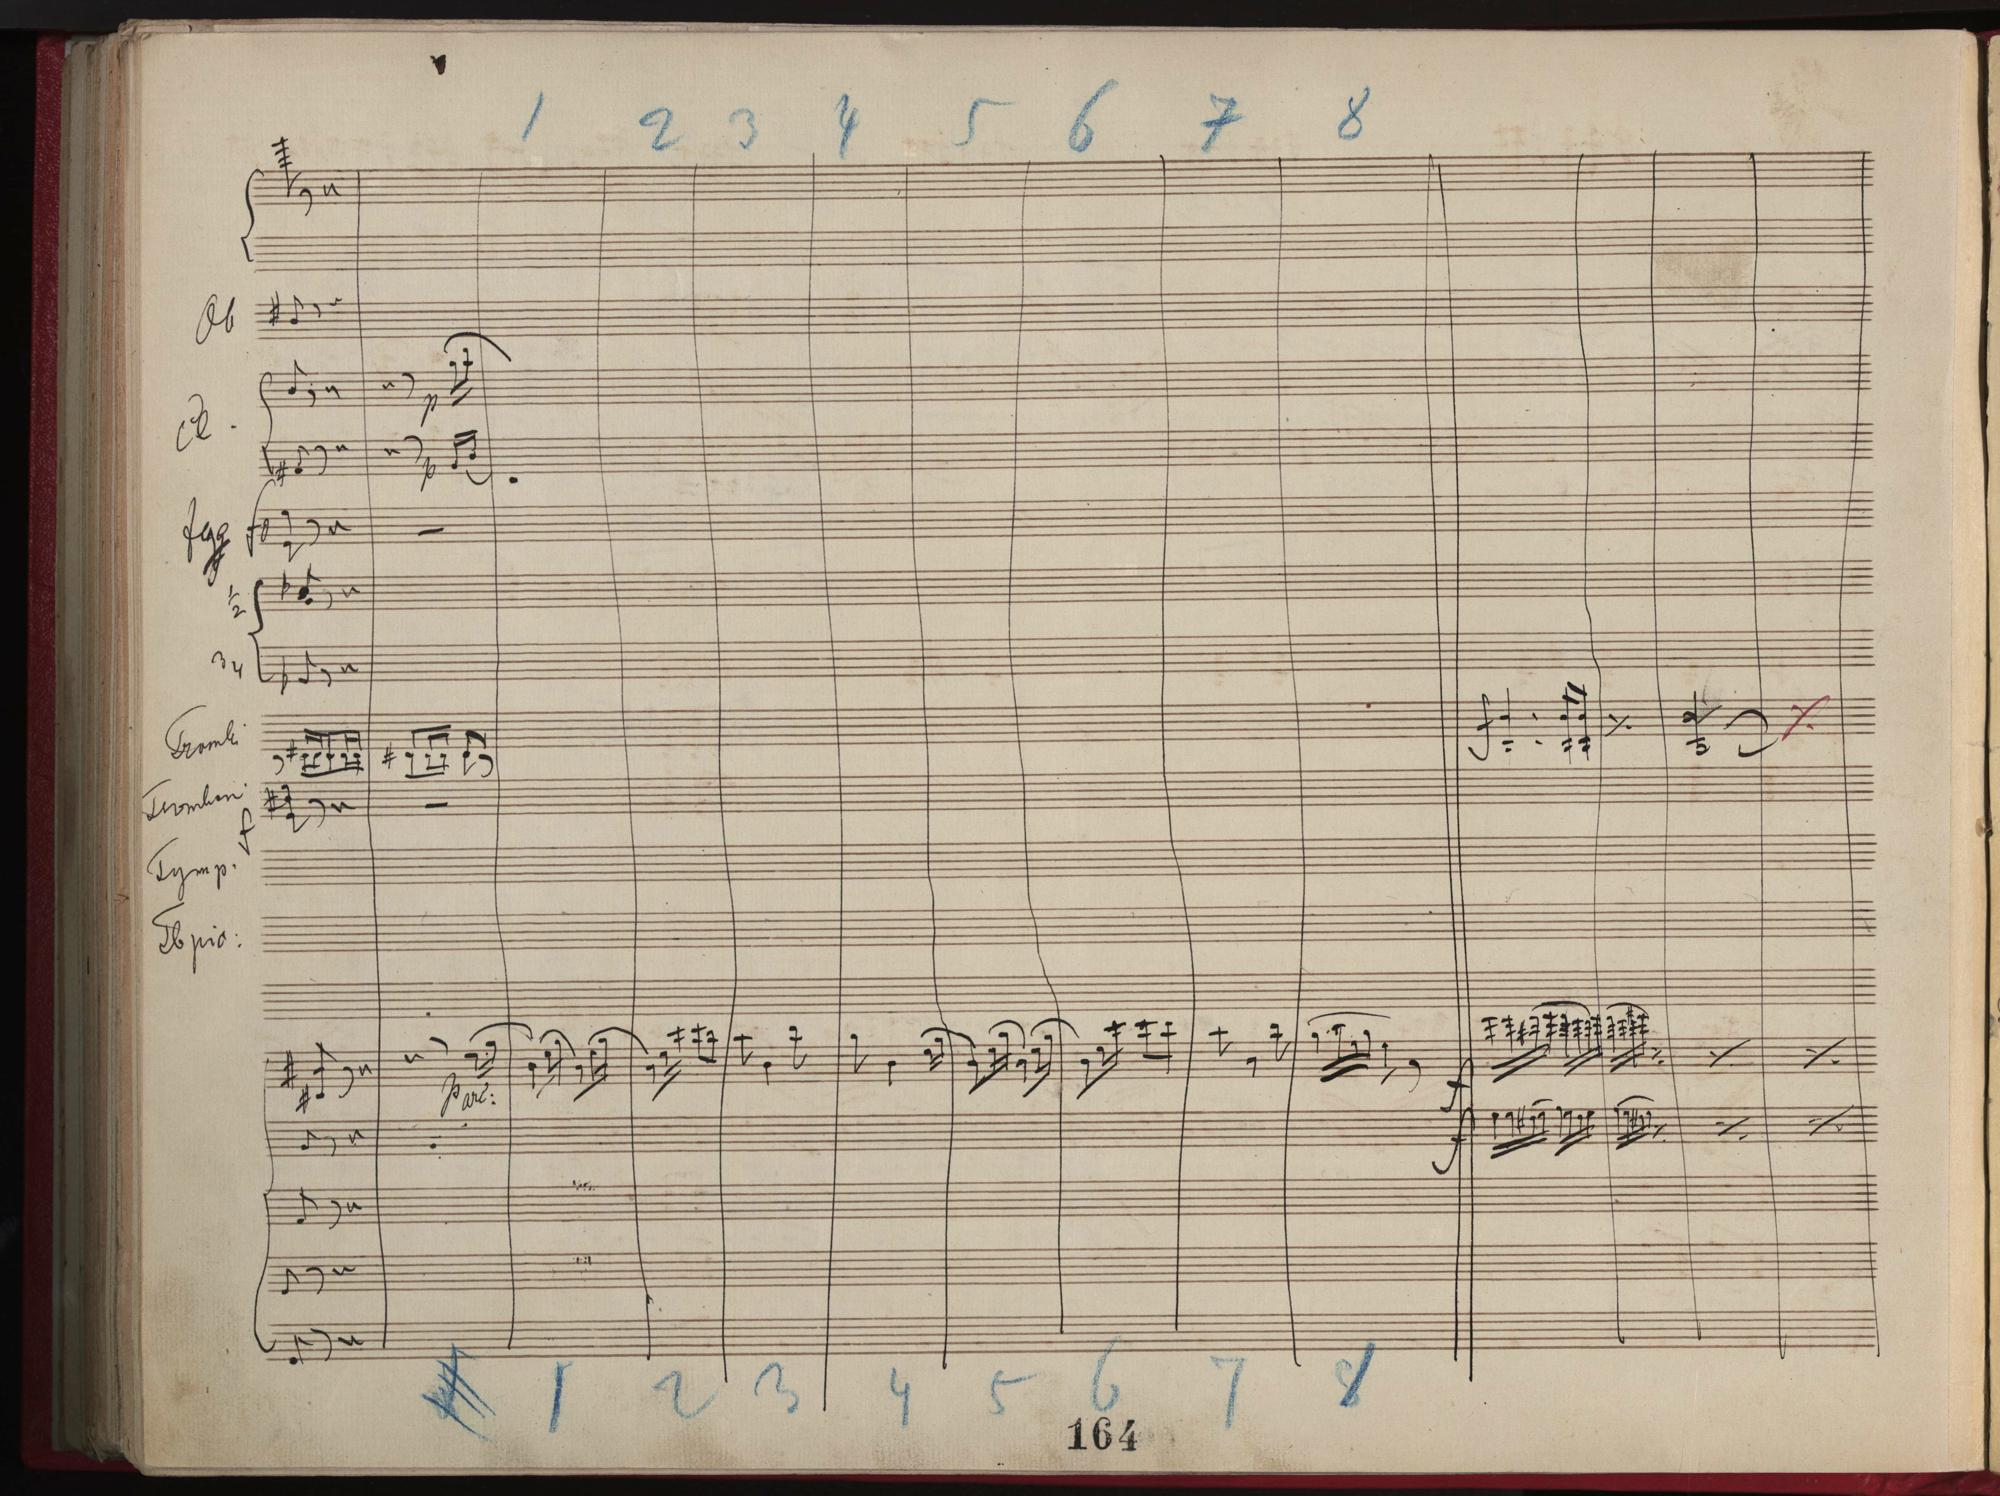 1 2 3 4 5 6 7 8
Ob
Cl.
p
p
fagg
1/2
3 4
Trombi
f
Tromboni
f
Tymp.
f
f
1 2 3 4 5 6 7 8
164